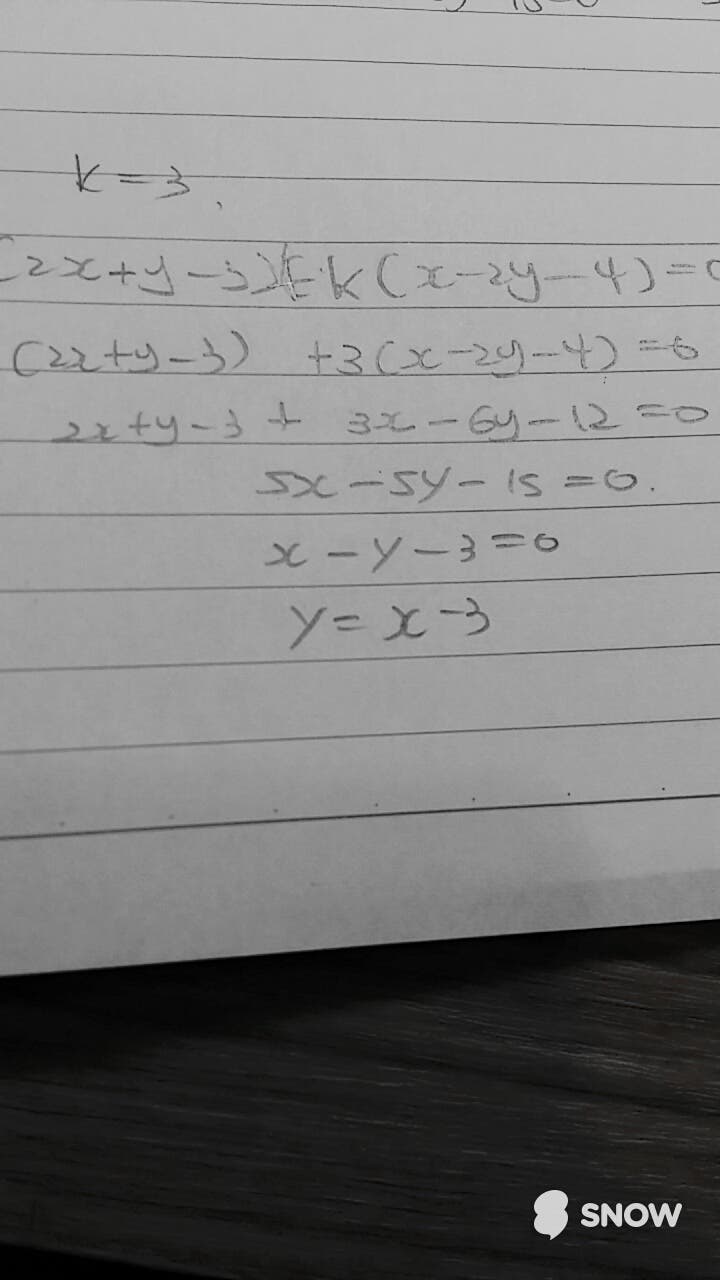 k=3.
(2x+y-3)+k(x-2y-4)=0
(2x+y-3) +3(x-2y-4)=0
2x+y-3+ 3x-6y-12=0
5x-5y-15=0.
x-y-3=0
y=x-3
SNOW